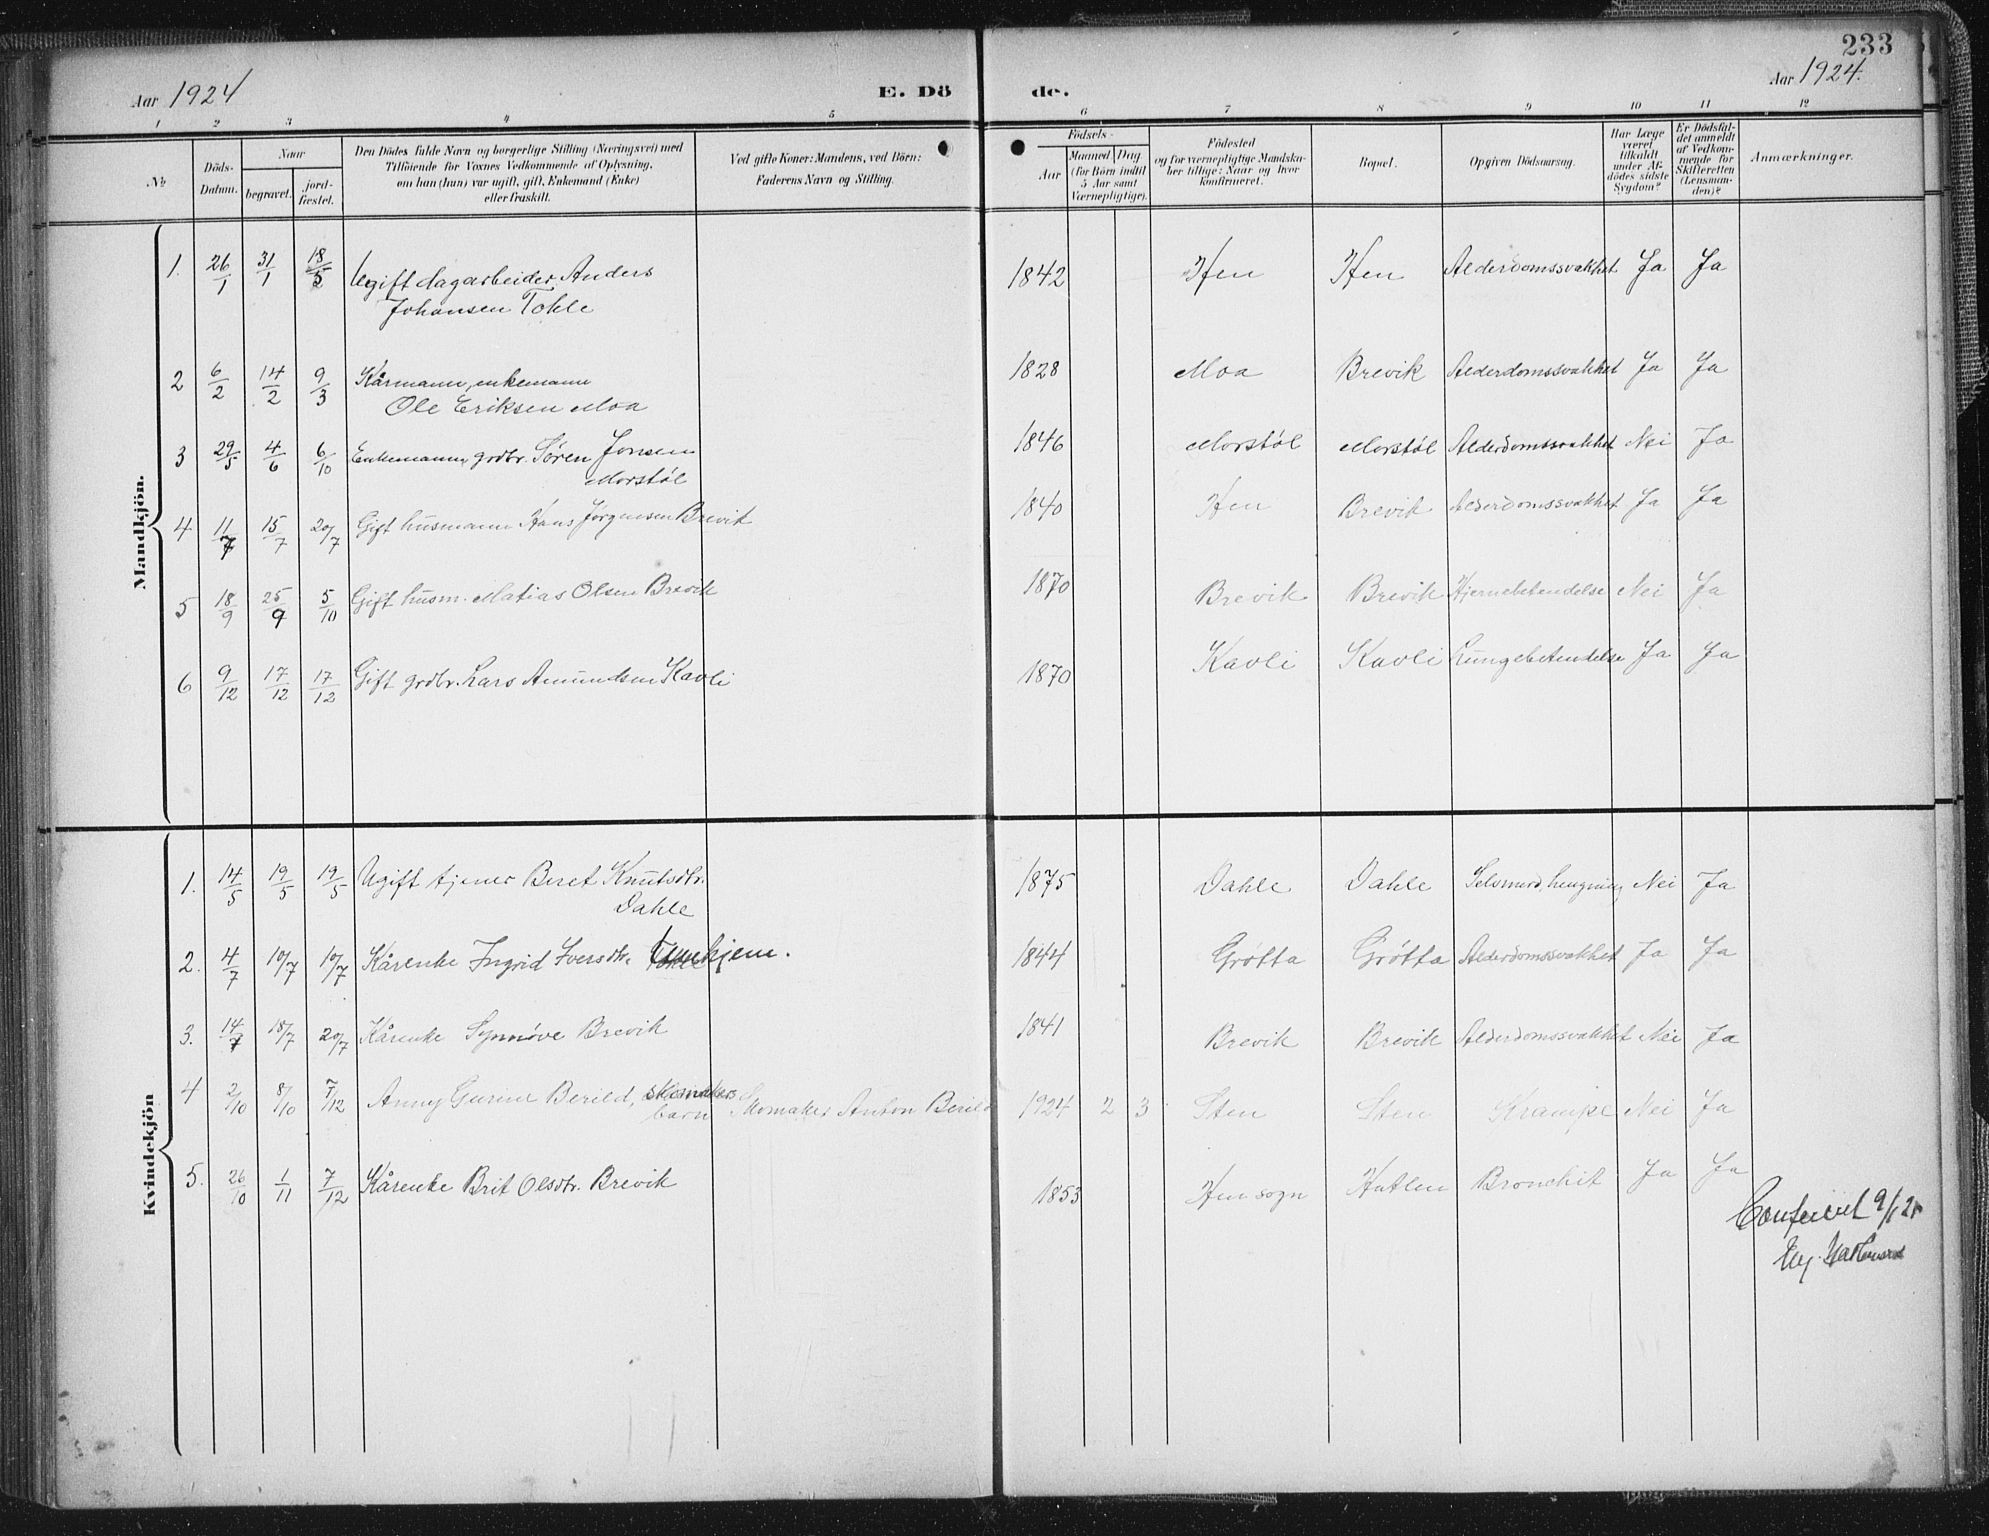 233
Aar 1924
E. Dö
de.
Aar 1924.
1 2 3 4 5 6 7 8 9 10 11 12
No
Döds-
Datum.
Naar
begravet.
jord-
fæstet.
Den Dödes fulde Navn og borgerlige Stilling (Næringsvei) med
Tilföiende for Voxnes Vedkommende af Oplysning,
om han (hun) var ugift, gift, Enkemand (Enke)
eller fraskilt.
Ved gifte Koner: Mandens, ved Börn:
Faderens Navn og Stilling.
Födsels-
Aar
Maaned Dag
(for Börn indtil
5 Aar samt
Værnepligtige).
Födested
og for værnepligtige Mandska-
ber tillige: Naar og hvor
konfirmeret.
Bopæl.
Opgiven Dödsaarsag.
Har Læge
været
tilkaldt
under Af-
dödes sidste
Sygdom?
Er Dödsfal-
det anmeldt
af Vedkom-
mende for
Skifteretten
(Lensman-
den)?
Anmærkninger.
Mandkjön.
1. 26/1 31/1 18/5 Ugift dagarbeider Anders
Johansen Tokle
1842 Hen Hen Alderdomssvakhet Ja Ja
2 6/2 14/2 9/3 Kårmann, enkemann
Ole Eriksen Moa
1828 Moa Brevik Alderdomssvakhet Ja Ja
3 29/5 4/6 6/10 Enkemann, grdbr. Søren Jonsen
Morstøl
1846 Morstøl Morstøl Alderdomssvakhet Nei Ja
4 11/7 15/7 20/7 Gift husmann Hans Jørgensen Brevik
1840 Hen Brevik Alderdomssvakhet Ja Ja
5 18/9 25/9 5/10 Gift husm. Matias Olsen Brevik
1870 Brevik Brevik Hjernebetendelse Nei Ja
6 9/12 17/12 17/12 Gift grdbr. Lars Amundsen Kavli
1870 Kavli Kavli Lungebetendelse Ja Ja
Kvindekjön
1. 14/5 19/5 19/5 Ugift tjener Beret Knutsdtr.
Dahle
1875 Dahle Dahle Selvmord, hengning Nei Ja
2. 4/7 10/7 10/7 Kårenke Ingrid Iversdtr.
1844 Grøtta Grøtta Alderdomssvakhet Ja Ja
3. 14/7 18/7 20/7 Kårenke Synnøve Brevik
1841 Brevik Brevik Alderdomssvakhet Nei Ja
4 2/10 8/10 7/12 Anny Gurine Berild, skomakers
barn Skomaker Anton Berild
1924 2 3 Sten Sten Krampe Nei Ja
5. 26/10 1/11 7/12 Kårenke Brit Olsdtr. Brevik
1853 Hen sogn Hatlen Bronchit Ja Ja
Conferert